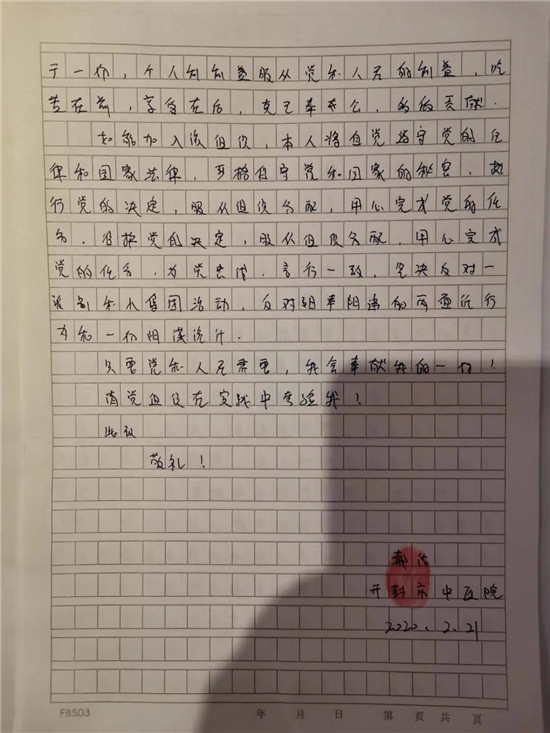 于一切，个人利利益服从党和人民的利益，吃
苦在前，享受在后，克己奉公，多做贡献.
如能加入该组织，本人将自觉遵守党的纪
律和国家法律，严格保守党和国家的秘密，执
行党的决定，服从组织分配，用心完成党的任
务，维护党和决定，服从组织分配，用心完成
党的任务，对党忠诚，言行一致，坚决反对一
派别和小集团活动，反对阳奉阴违的两面派行
为和一切阴谋诡计.
只要党和人民需要，我会奉献我的一切！
请党组织在实践中考验我！
此致
敬礼！
开封市中医院
2020.2.21
F8503
年 月 日 第 页共 页